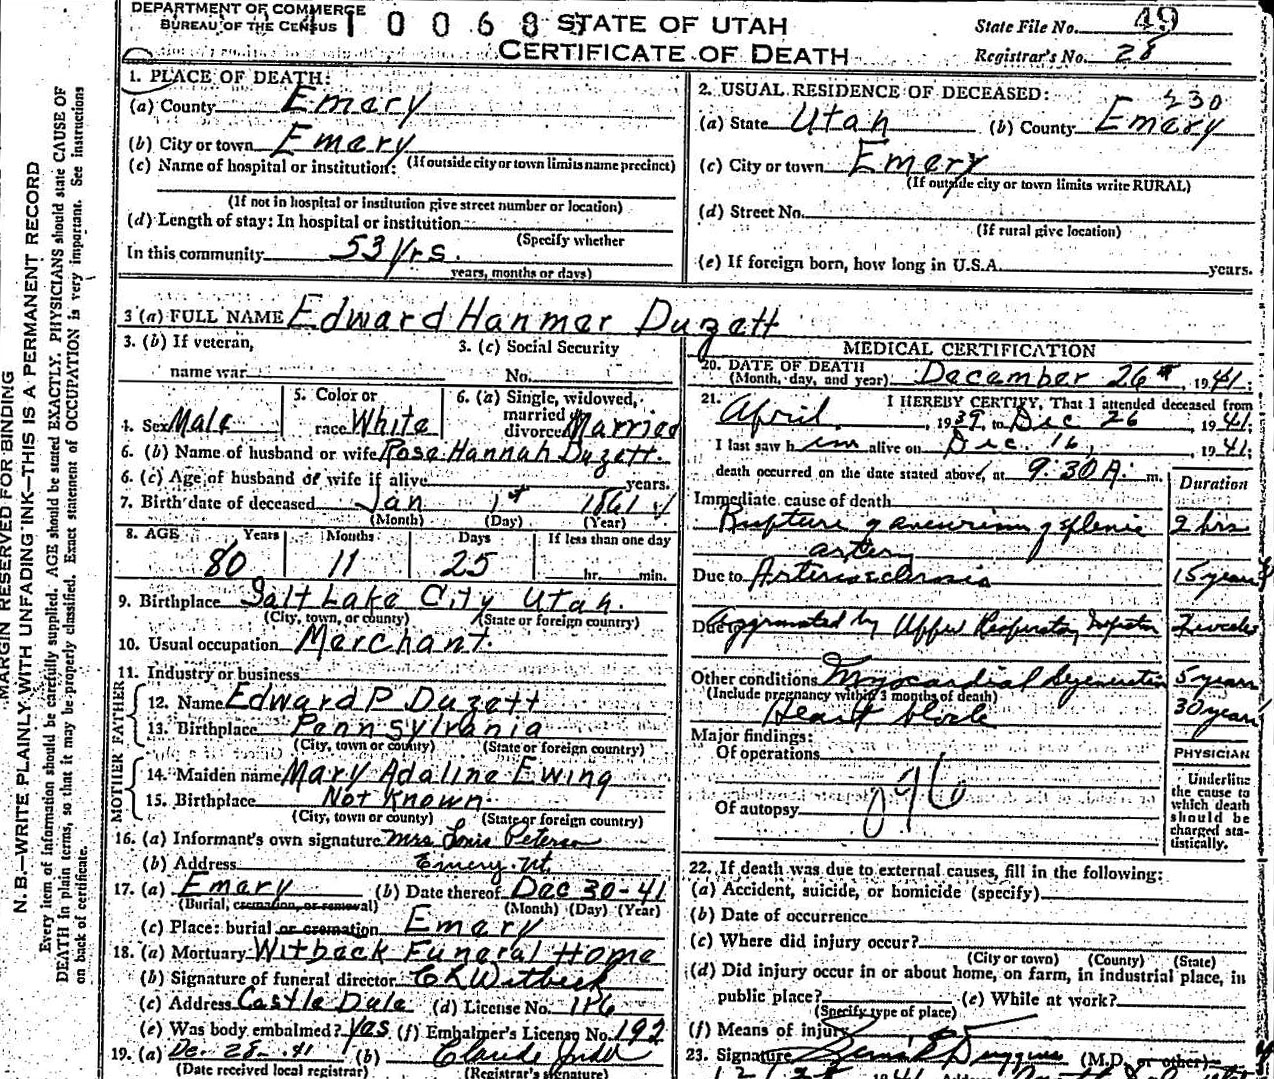 DEPARTMENT OF COMMERCE
BUREAU OF THE CENSUS
1 0 0 6 8
STATE OF UTAH
CERTIFICATE OF DEATH
State File No. 49
Registrar's No. 28
MARGIN RESERVED FOR BINDING
N. B.—WRITE PLAINLY WITH UNFADING INK—THIS IS A PERMANENT RECORD
Every item of information should be carefully supplied. AGE should be stated EXACTLY. PHYSICIANS should state CAUSE OF
DEATH in plain terms, so that it may be properly classified. Exact statement of OCCUPATION is very important. See instructions
on back of certificate.
1. PLACE OF DEATH:
(a) County Emery
(b) City or town Emery
(If outside city or town limits name precinct)
(c) Name of hospital or institution:
(If not in hospital or institution give street number or location)
(d) Length of stay: In hospital or institution
(Specify whether
In this community 53 Yrs.
years, months or days)
2. USUAL RESIDENCE OF DECEASED:
230
(a) State Utah (b) County Emery
(c) City or town Emery
(If outside city or town limits write RURAL)
(d) Street No.
(If rural give location)
(e) If foreign born, how long in U.S.A. years.
3 (a) FULL NAME Edward Hanmer Duzett
3. (b) If veteran,
name war
3. (c) Social Security
No.
4. Sex Male
5. Color or
race White
6. (a) Single, widowed,
married
divorced Married
6. (b) Name of husband or wife Rose Hannah Duzett.
6. (c) Age of husband or wife if alive years.
7. Birth date of deceased Jan 1st 1861
(Month) (Day) (Year)
8. AGE Years Months Days If less than one day
80 11 25 hr. min.
9. Birthplace Salt Lake City Utah.
(City, town, or county) (State or foreign country)
10. Usual occupation Merchant.
11. Industry or business
FATHER
12. Name Edward P Duzett
13. Birthplace Pennsylvania
(City, town or county) (State or foreign country)
MOTHER
14. Maiden name Mary Adaline Ewing
15. Birthplace Not Known.
(City, town or county) (State or foreign country)
16. (a) Informant's own signature Mrs Peterson
(b) Address Emery. Ut.
17. (a) Emery (b) Date thereof Dec 30-41
(Burial, cremation, or removal) (Month) (Day) (Year)
(c) Place: burial or cremation Emery
18. (a) Mortuary Witbeck Funeral Home
(b) Signature of funeral director CR Witbeck
(c) Address Castle Dale (d) License No. 186
(e) Was body embalmed? Yes (f) Embalmer's License No. 192
19. (a) De. 28-.41 (b) Claude
(Date received local registrar) (Registrar's signature)
MEDICAL CERTIFICATION
20. DATE OF DEATH
(Month, day, and year) December 26th, 1941;
21. I HEREBY CERTIFY, That I attended deceased from
April, 1939, to Dec 26, 1941;
I last saw him alive on Dec. 16, 1941;
death occurred on the date stated above, at 9:30 A. m.
Duration
Immediate cause of death
Rupture of aneurism of splenic 2 hrs
artery
Due to Arteriosclerosis 15 years
Due to Aggravated by Upper Respiratory Infection 2 weeks
Other conditions Myocardial Degeneration 5 years
(Include pregnancy within 3 months of death)
Heart block 30 years
Major findings:
Of operations
096
Of autopsy
PHYSICIAN
Underline
the cause to
which death
should be
charged sta-
tistically.
22. If death was due to external causes, fill in the following:
(a) Accident, suicide, or homicide (specify)
(b) Date of occurrence
(c) Where did injury occur?
(City or town) (County) (State)
(d) Did injury occur in or about home, on farm, in industrial place, in
public place? (e) While at work?
(Specify type of place)
(f) Means of injury
23. Signature Duggins (M.D. or other)